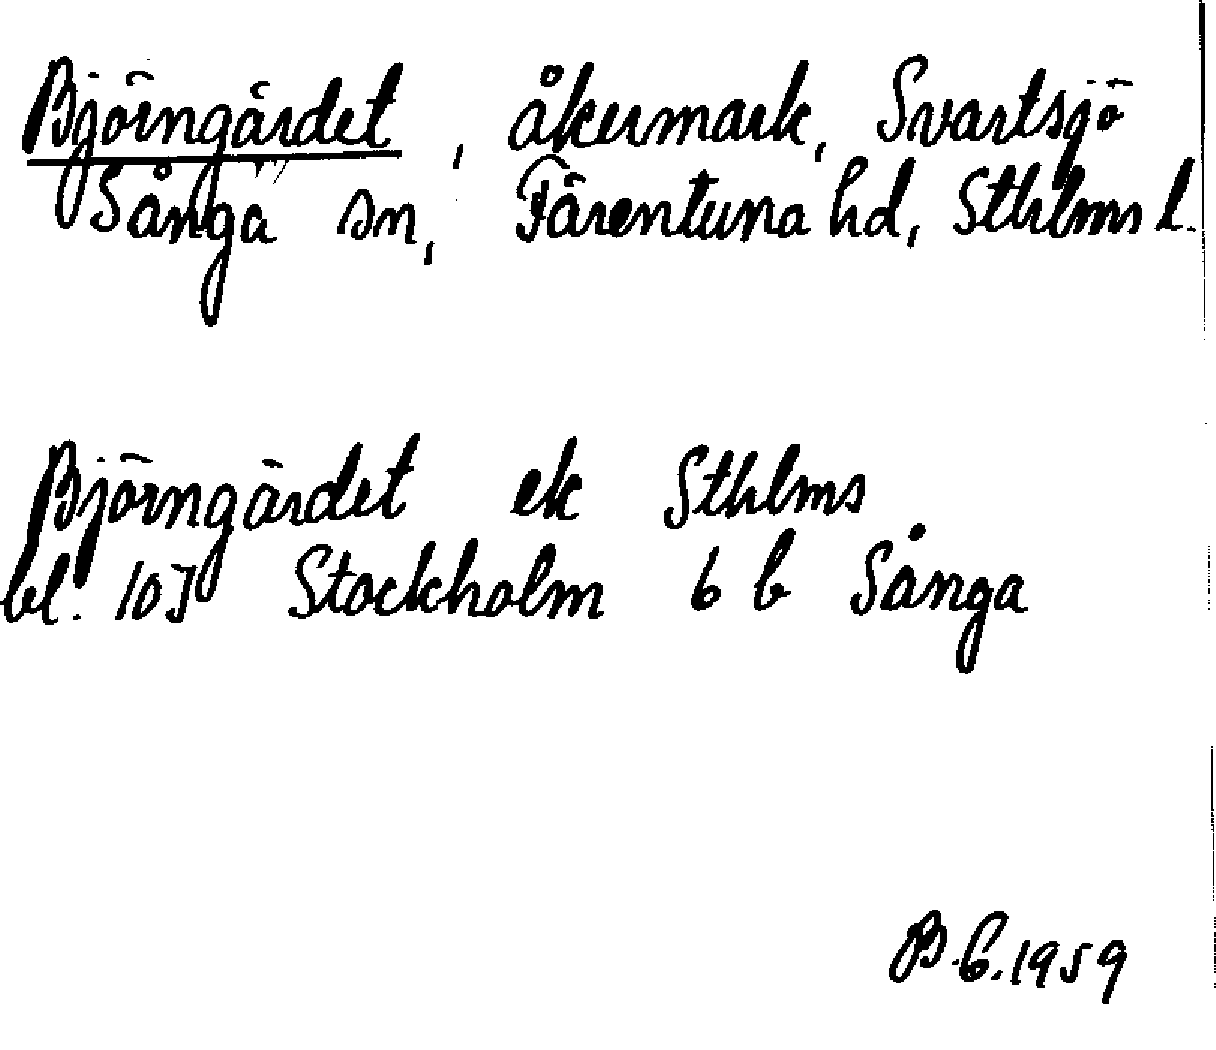 Björngärdet, åkermark, Svartsjö
Sånga sn, Färentuna hd, Sthlms l.
Björngärdet ek Sthlms
bl. 10J Stockholm 6 b Sånga
B.G.1959